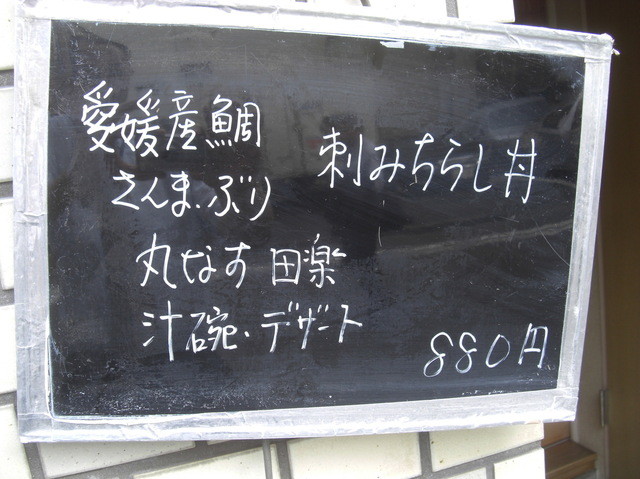 愛媛産鯛
さんま.ぶり
刺みちらし丼
丸なす 田楽
汁碗.デザート
880円